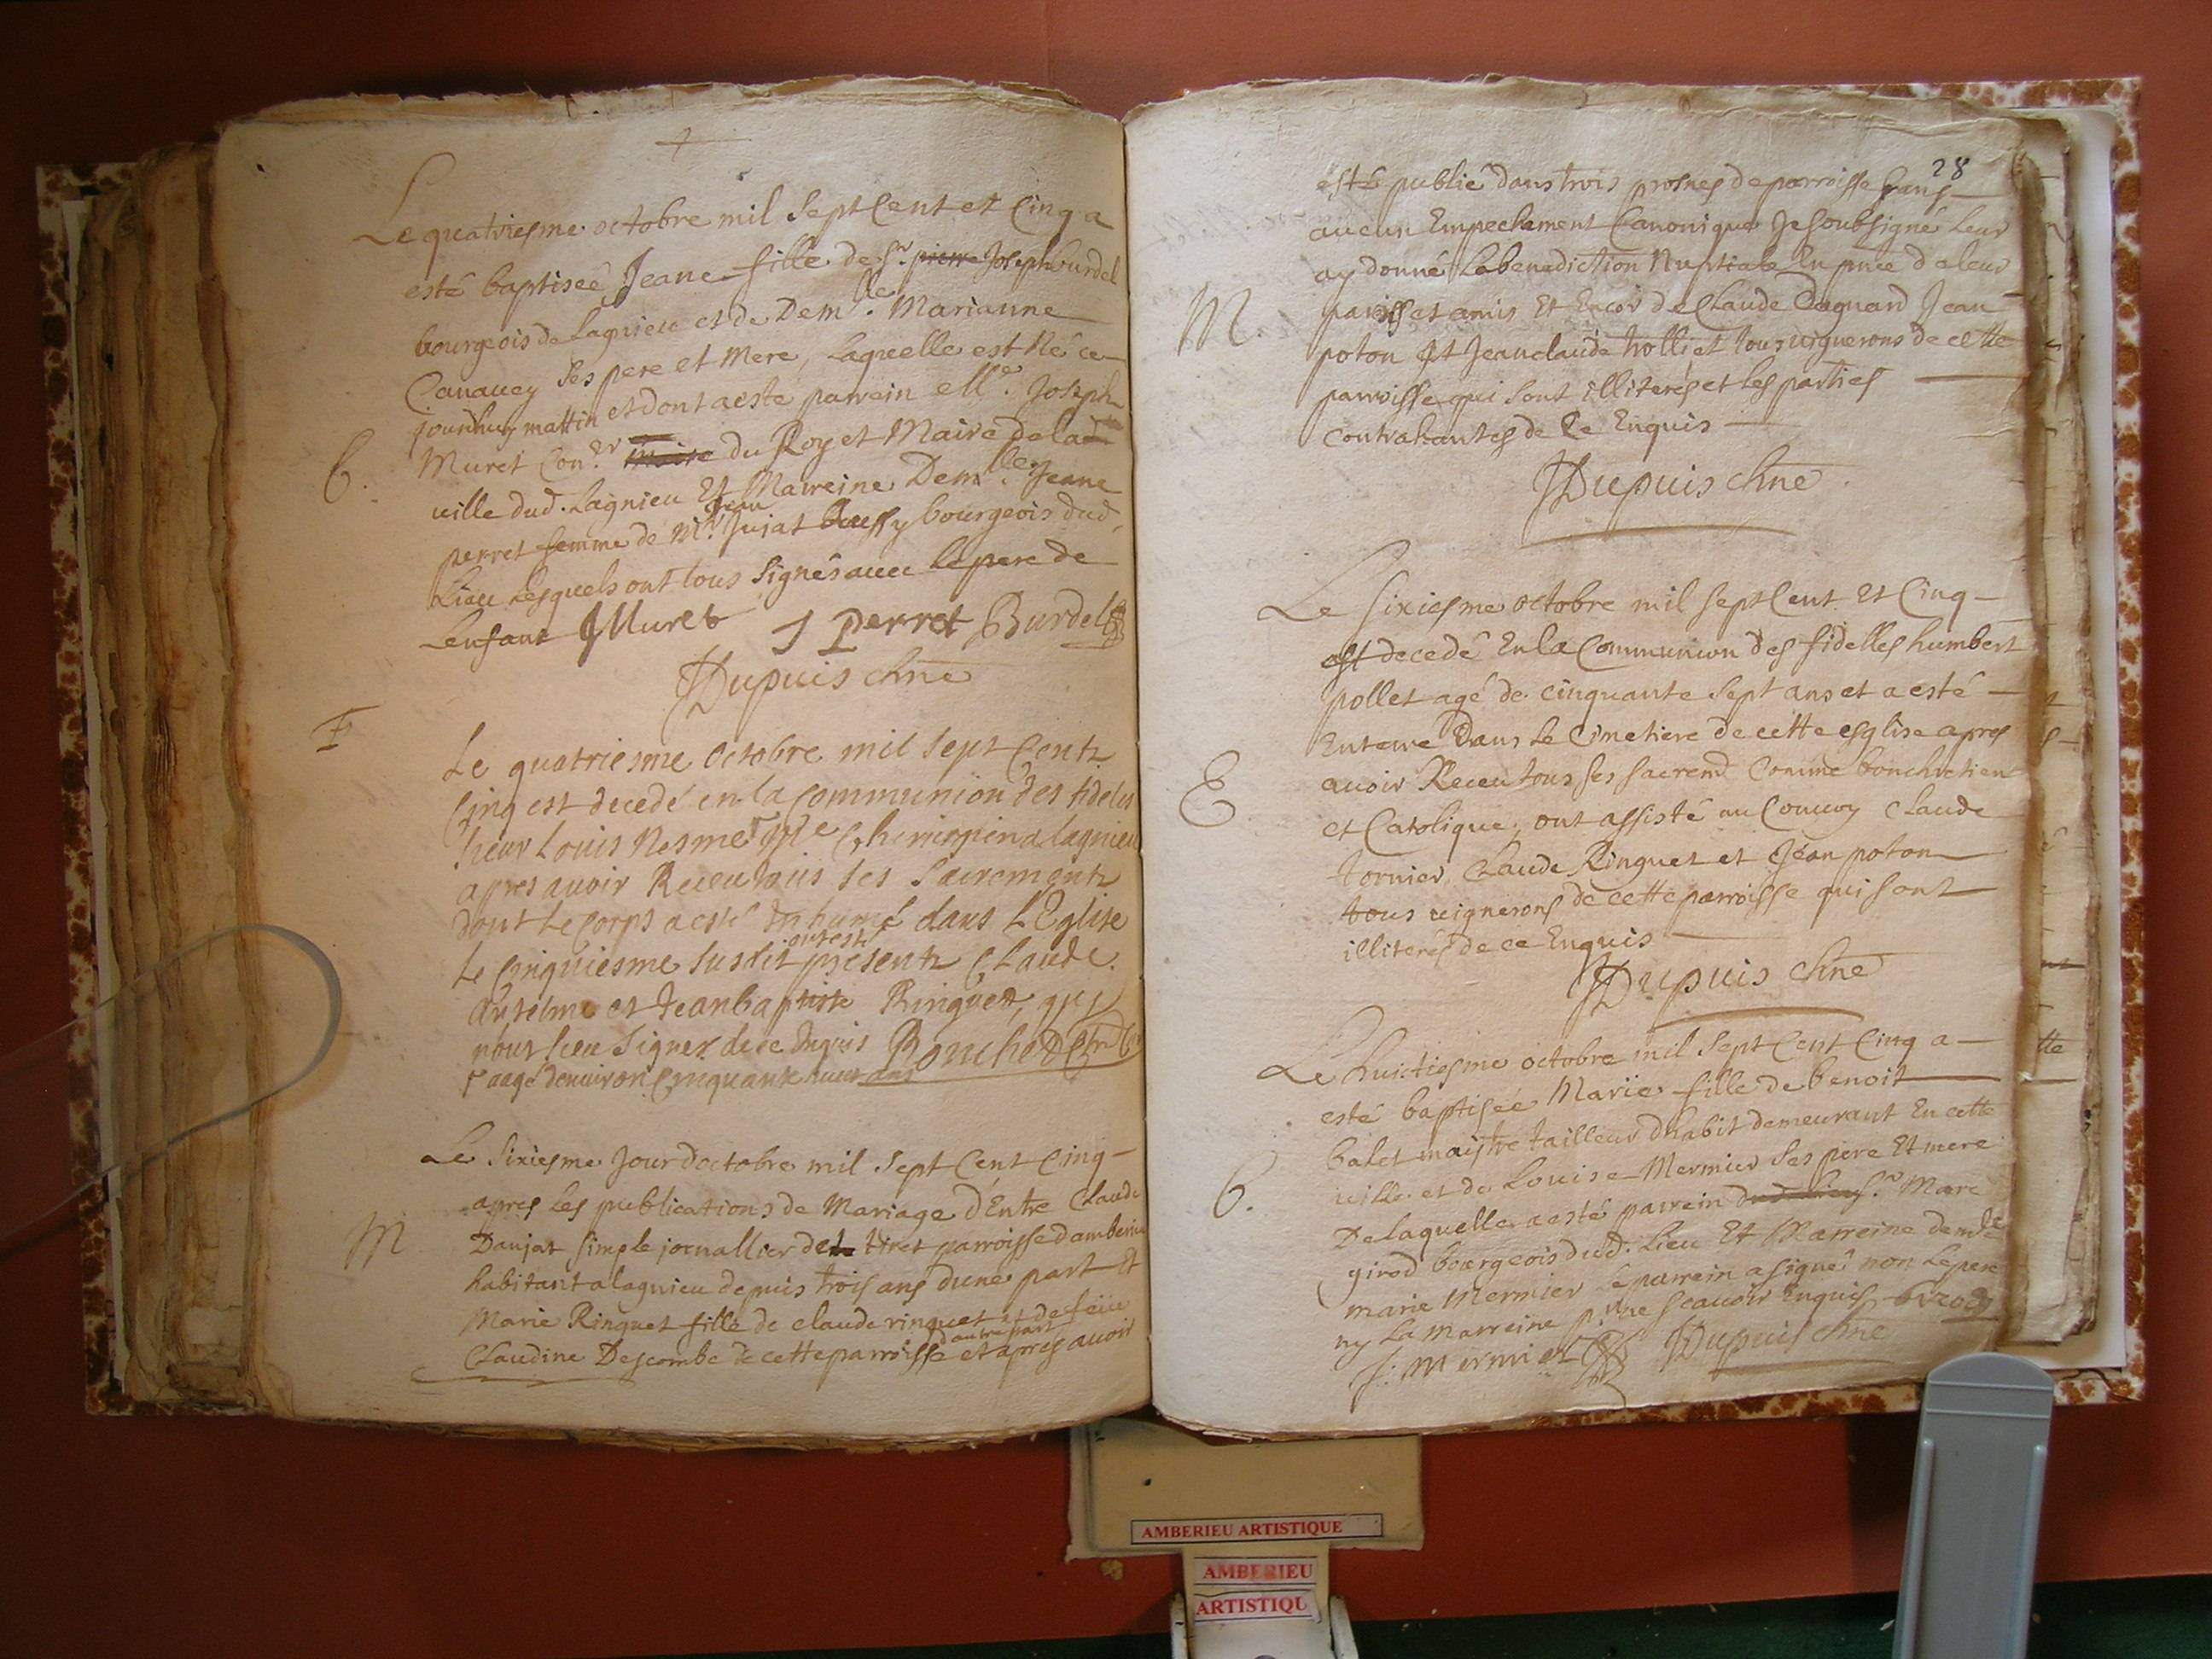 Le quatriesme octobre mil sept Cent et Cinq a
esté baptiseé Jeane fille de Sr. pierre Joseph burdel
bourgeois de Lagnieu et de Demlle. Marianne
Canauey ses pere et Mere, Laquelle est Né ce
jourdhuy mattin et dont a esté parrein Mre. Joseph
B. Muret Coner. Maire du Roy et Maire de lad
ville dud. Lagnieu Et Marreine Demlle. Jeane
perret femme de Mr. Jean Jujat bourgeois dud.
Lieu Lesquels ont tous Signés auec le pere de
Lenfant JMuret J perret Burdel
JDupuis chne
E
Le quatriesme Octobre mil sept Centz
Cinq est decedé en la Communion des fideles
sieur Louis Nesme a lagnieu
apres auoir Receu tous ses Sacrementz
dont le corps a esté Inhumé dans L'Eglise
Le Cinquiesme susdit ont esté presentz Claude
Antelme et Jean baptiste Ringuet, qui
nont sceu signer de ce Inquis Bouchet
aagé denuiron Cinquante ans
Le Sixiesme Jour doctobre mil sept Cent Cinq
apres les publications de Mariage d'Entre Claude
M Daujat simple jornallier de tiret parroisse damberieu
habitant a lagnieu depuis trois ans dune part Et
Marie Ringuet fille de claude ringuet et de feüe
Claudine Descombe de cette parroisse dautre part et apres auoir
28
esté publié dans trois prosnes de parroisse sans
aucun Empechement Canonique Je soubsigné leur
ay donné La benediction Nuptiale En pnce de leur
M. parens et amis Et Encor de Claude Dagnard Jean
poton Et Jean claude trolliet tous uignerons de cette
parroisse qui sont illiterés et les parties
contrahantes de Ce Enquis
JDupuis chne
Le Sixiesme octobre mil sept Cent Et Cinq
est decedé En la Communion des fidelles humbert
pollet agé de cinquante sept ans et a esté
Enterré Dans Le Cimetiere de cette esglise apres
E auoir Receu tous ses sacremt Comme bon chretien
et Catolique, ont assisté au Conuoy Claude
tornier, Claude Ringuet et Jean poton
tous uignerons de cette parroisse qui sont
illiterés de ce Enquis
JDupuis chne
Le huictiesme octobre mil Sept Cent Cinq a
esté baptiseé Marie fille de benoit
balet maistre tailleur dhabit demeurant En cette
B. uille et de Louise Mermier ses pere Et mere
De laquelle a esté parrein dud. Lieu Sr. Marc
girod bourgeois dud. Lieu Et Marreine demlle
marie Mermier Le parrein a signé non Le pere
ny La marreine pour ne scauoir Enquis Girod
f. mermier JDupuis chne
AMBERIEU ARTISTIQUE
AMBERIEU
ARTISTIQU